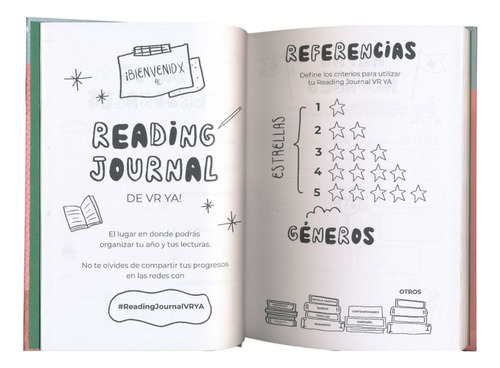 ¡BIENVENIDX
AL
READING
JOURNAL
DE VR YA!
El lugar en donde podrás
organizar tu año y tus lecturas.
No te olvides de compartir tus progresos
en las redes con
#ReadingJournalVRYA
REFERENCIAS
Define los criterios para utilizar
tu Reading Journal VR YA
ESTRELLAS
1
2
3
4
5
GÉNEROS
OTROS